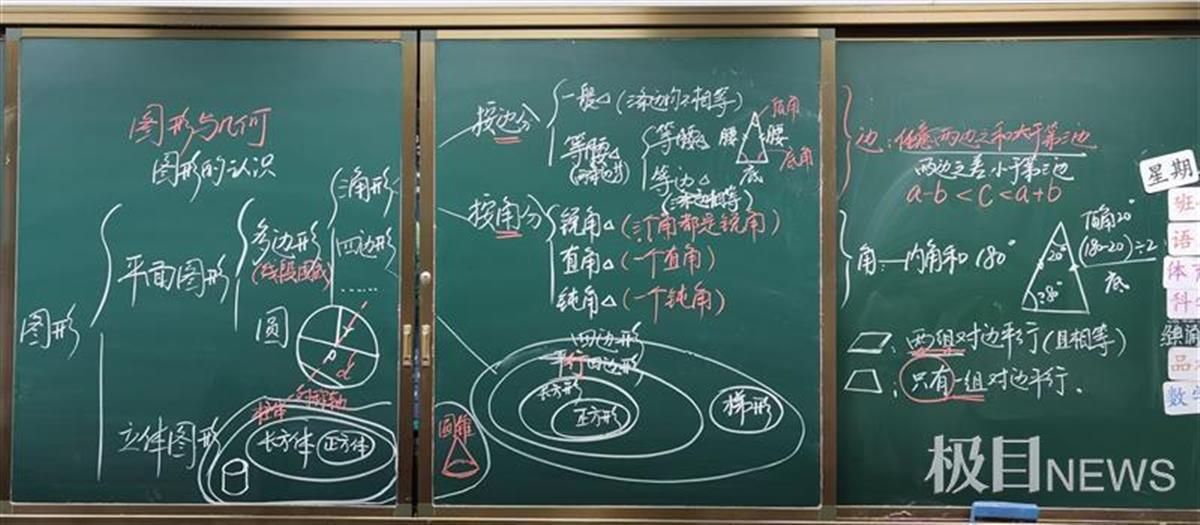 图形与几何
图形的认识
图形
平面图形
多边形
三角形
四边形
……
圆
r
d
立体图形
长方体
正方体
圆锥
按边分
一般△(三条边均不相等)
等腰△
等腰△
等边△
(三边相等)
顶角
腰
腰
底角
底
按角分
锐角△(三个角都是锐角)
直角△(一个直角)
钝角△(一个钝角)
四边形
平行四边形
长方形
正方形
梯形
边:任意两边之和大于第三边
两边之差小于第三边
a-b<c<a+b
角:—内角和180°
顶角20°
(180-20)÷2
底
20°
80°
:两组对边平行(且相等)
:只有一组对边平行.
星期
班
语
体育
科
品
数学
极目NEWS